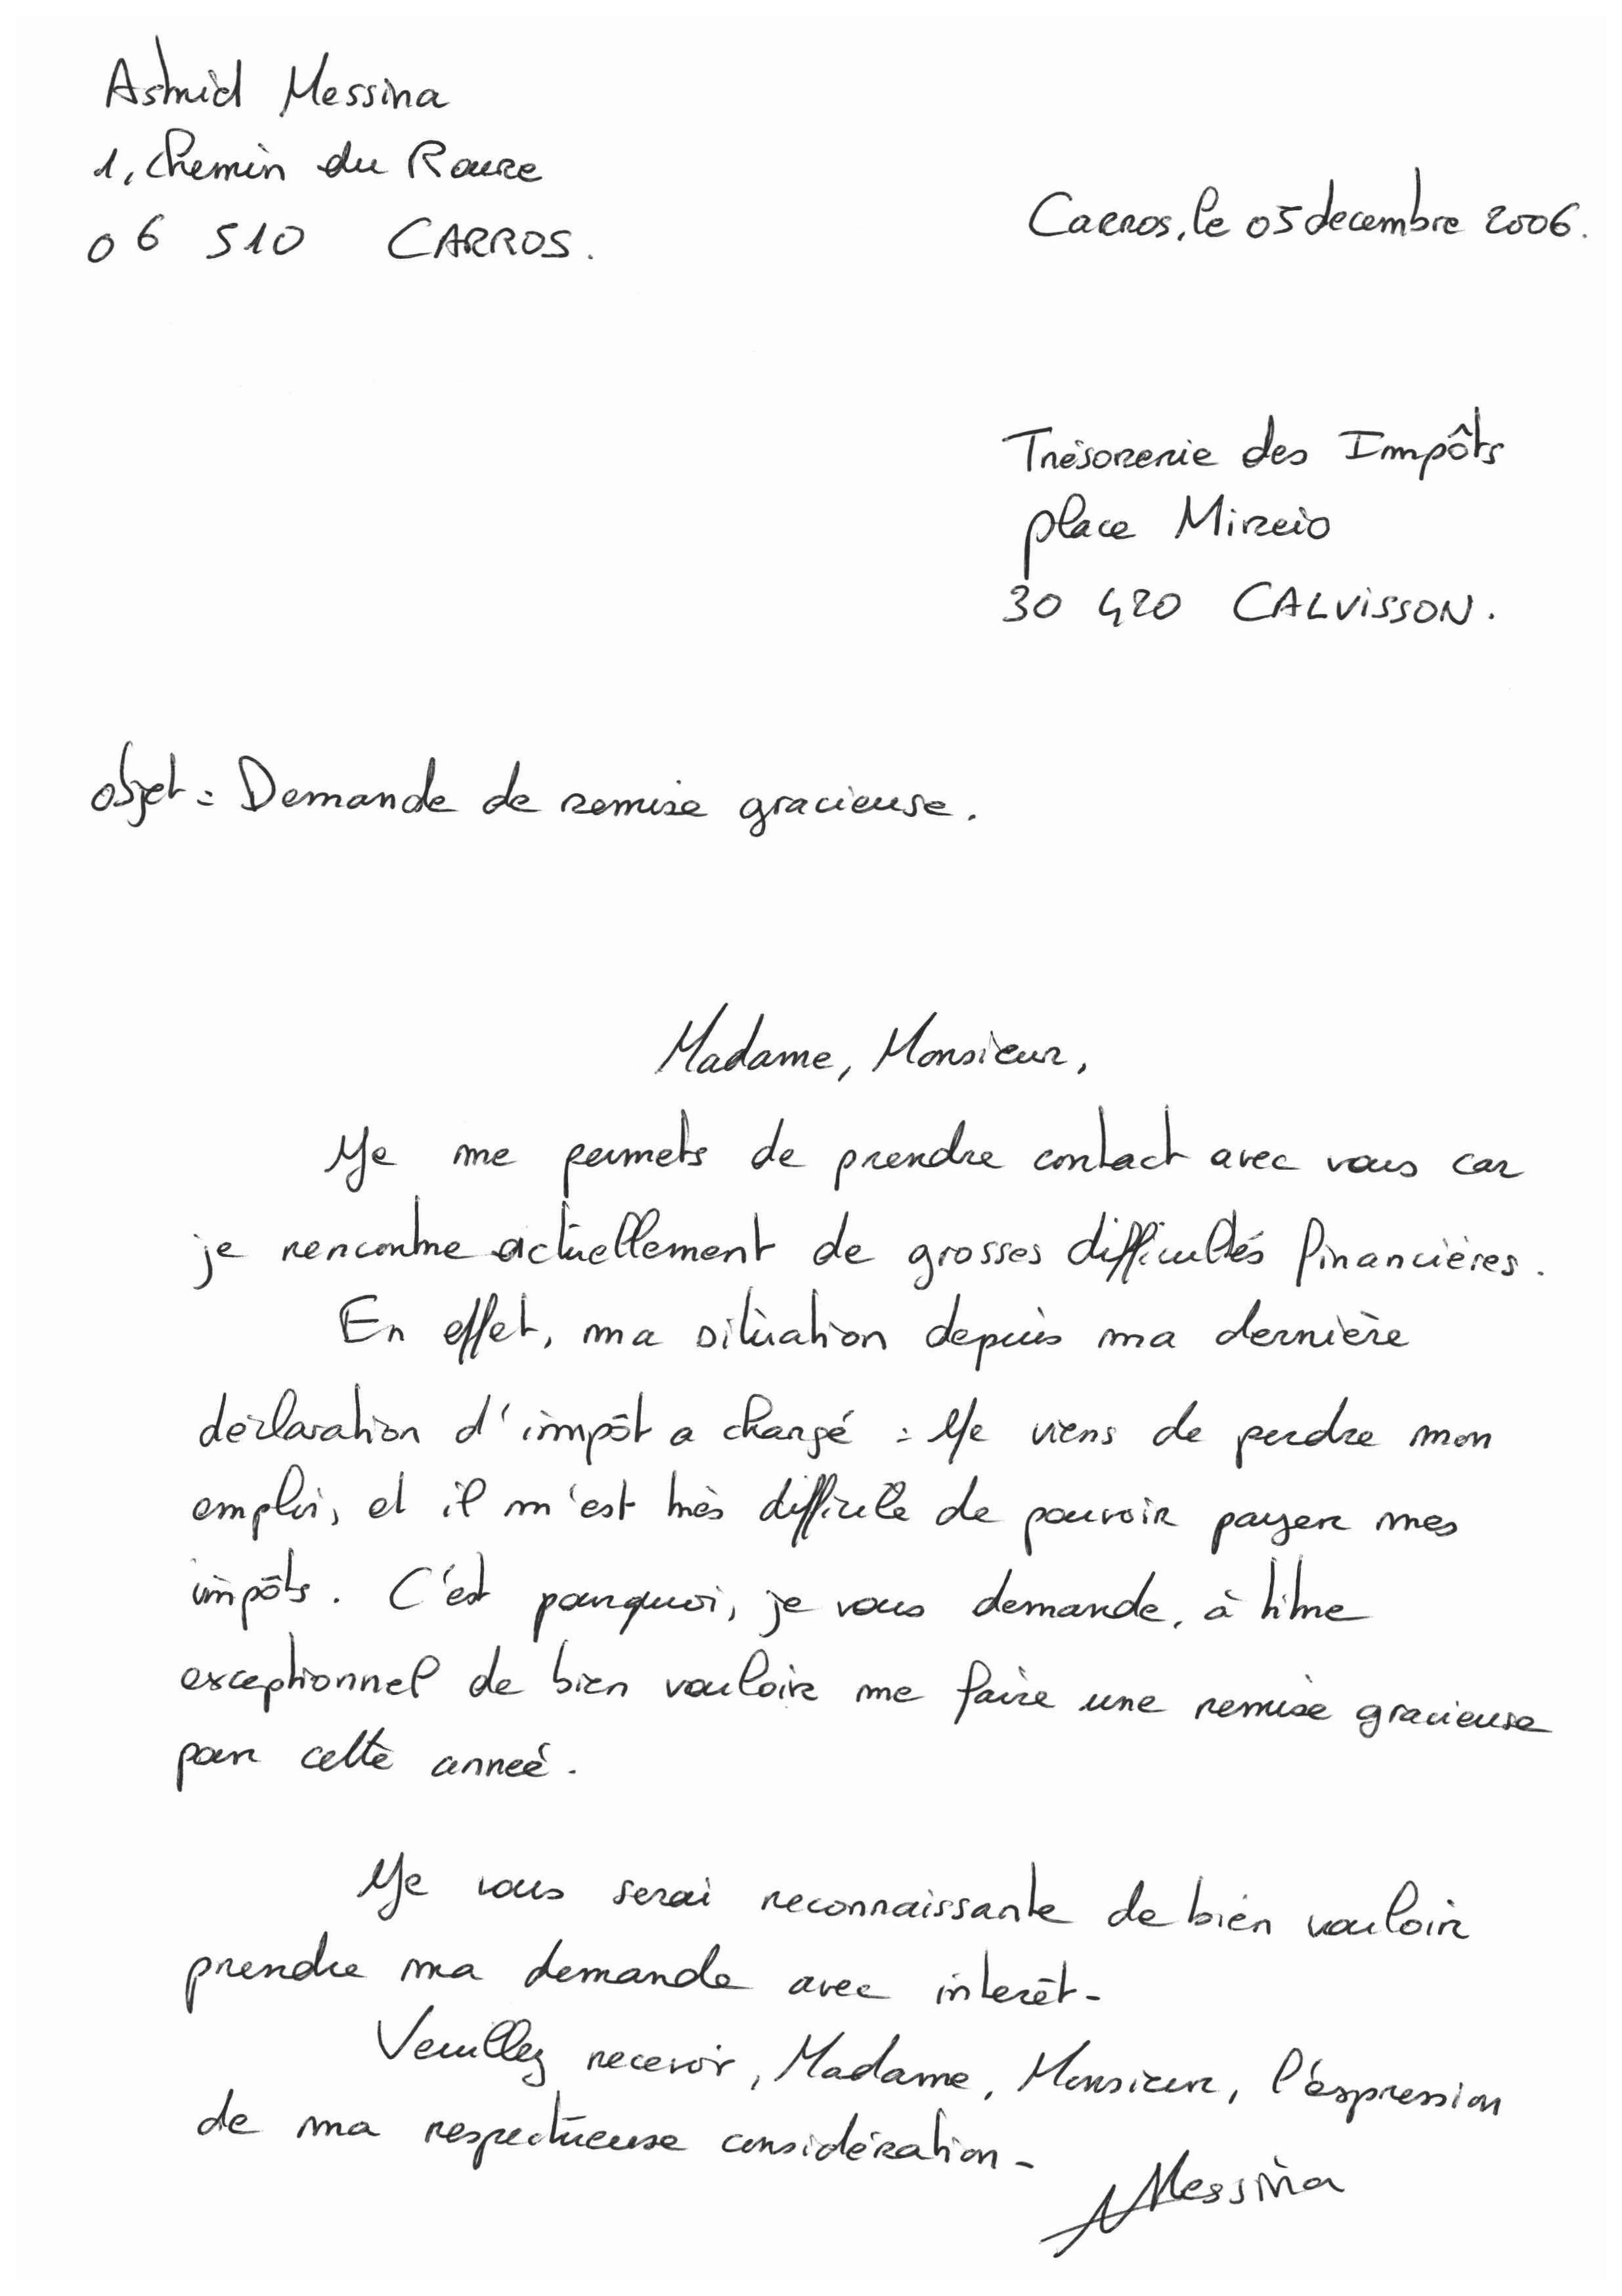 Astrid Messina
1, chemin du Roure
06 510 CARROS.
Carros, le 05 decembre 2006.
Trésorerie des Impôts
place Mireio
30 420 CALVISSON.
objet : Demande de remise gracieuse.
Madame, Monsieur,
Je me permets de prendre contact avec vous car
je rencontre actuellement de grosses difficultés financières.
En effet, ma situation depuis ma dernière
déclaration d'impôt a changé : Je viens de perdre mon
emploi, et il m'est très difficile de pouvoir payer mes
impôts. C'est pourquoi, je vous demande, à titre
exceptionnel de bien vouloir me faire une remise gracieuse
pour cette année.
Je vous serai reconnaissante de bien vouloir
prendre ma demande avec interêt.
Veuillez recevoir, Madame, Monsieur, l'expression
de ma respectueuse considération.
AMessina